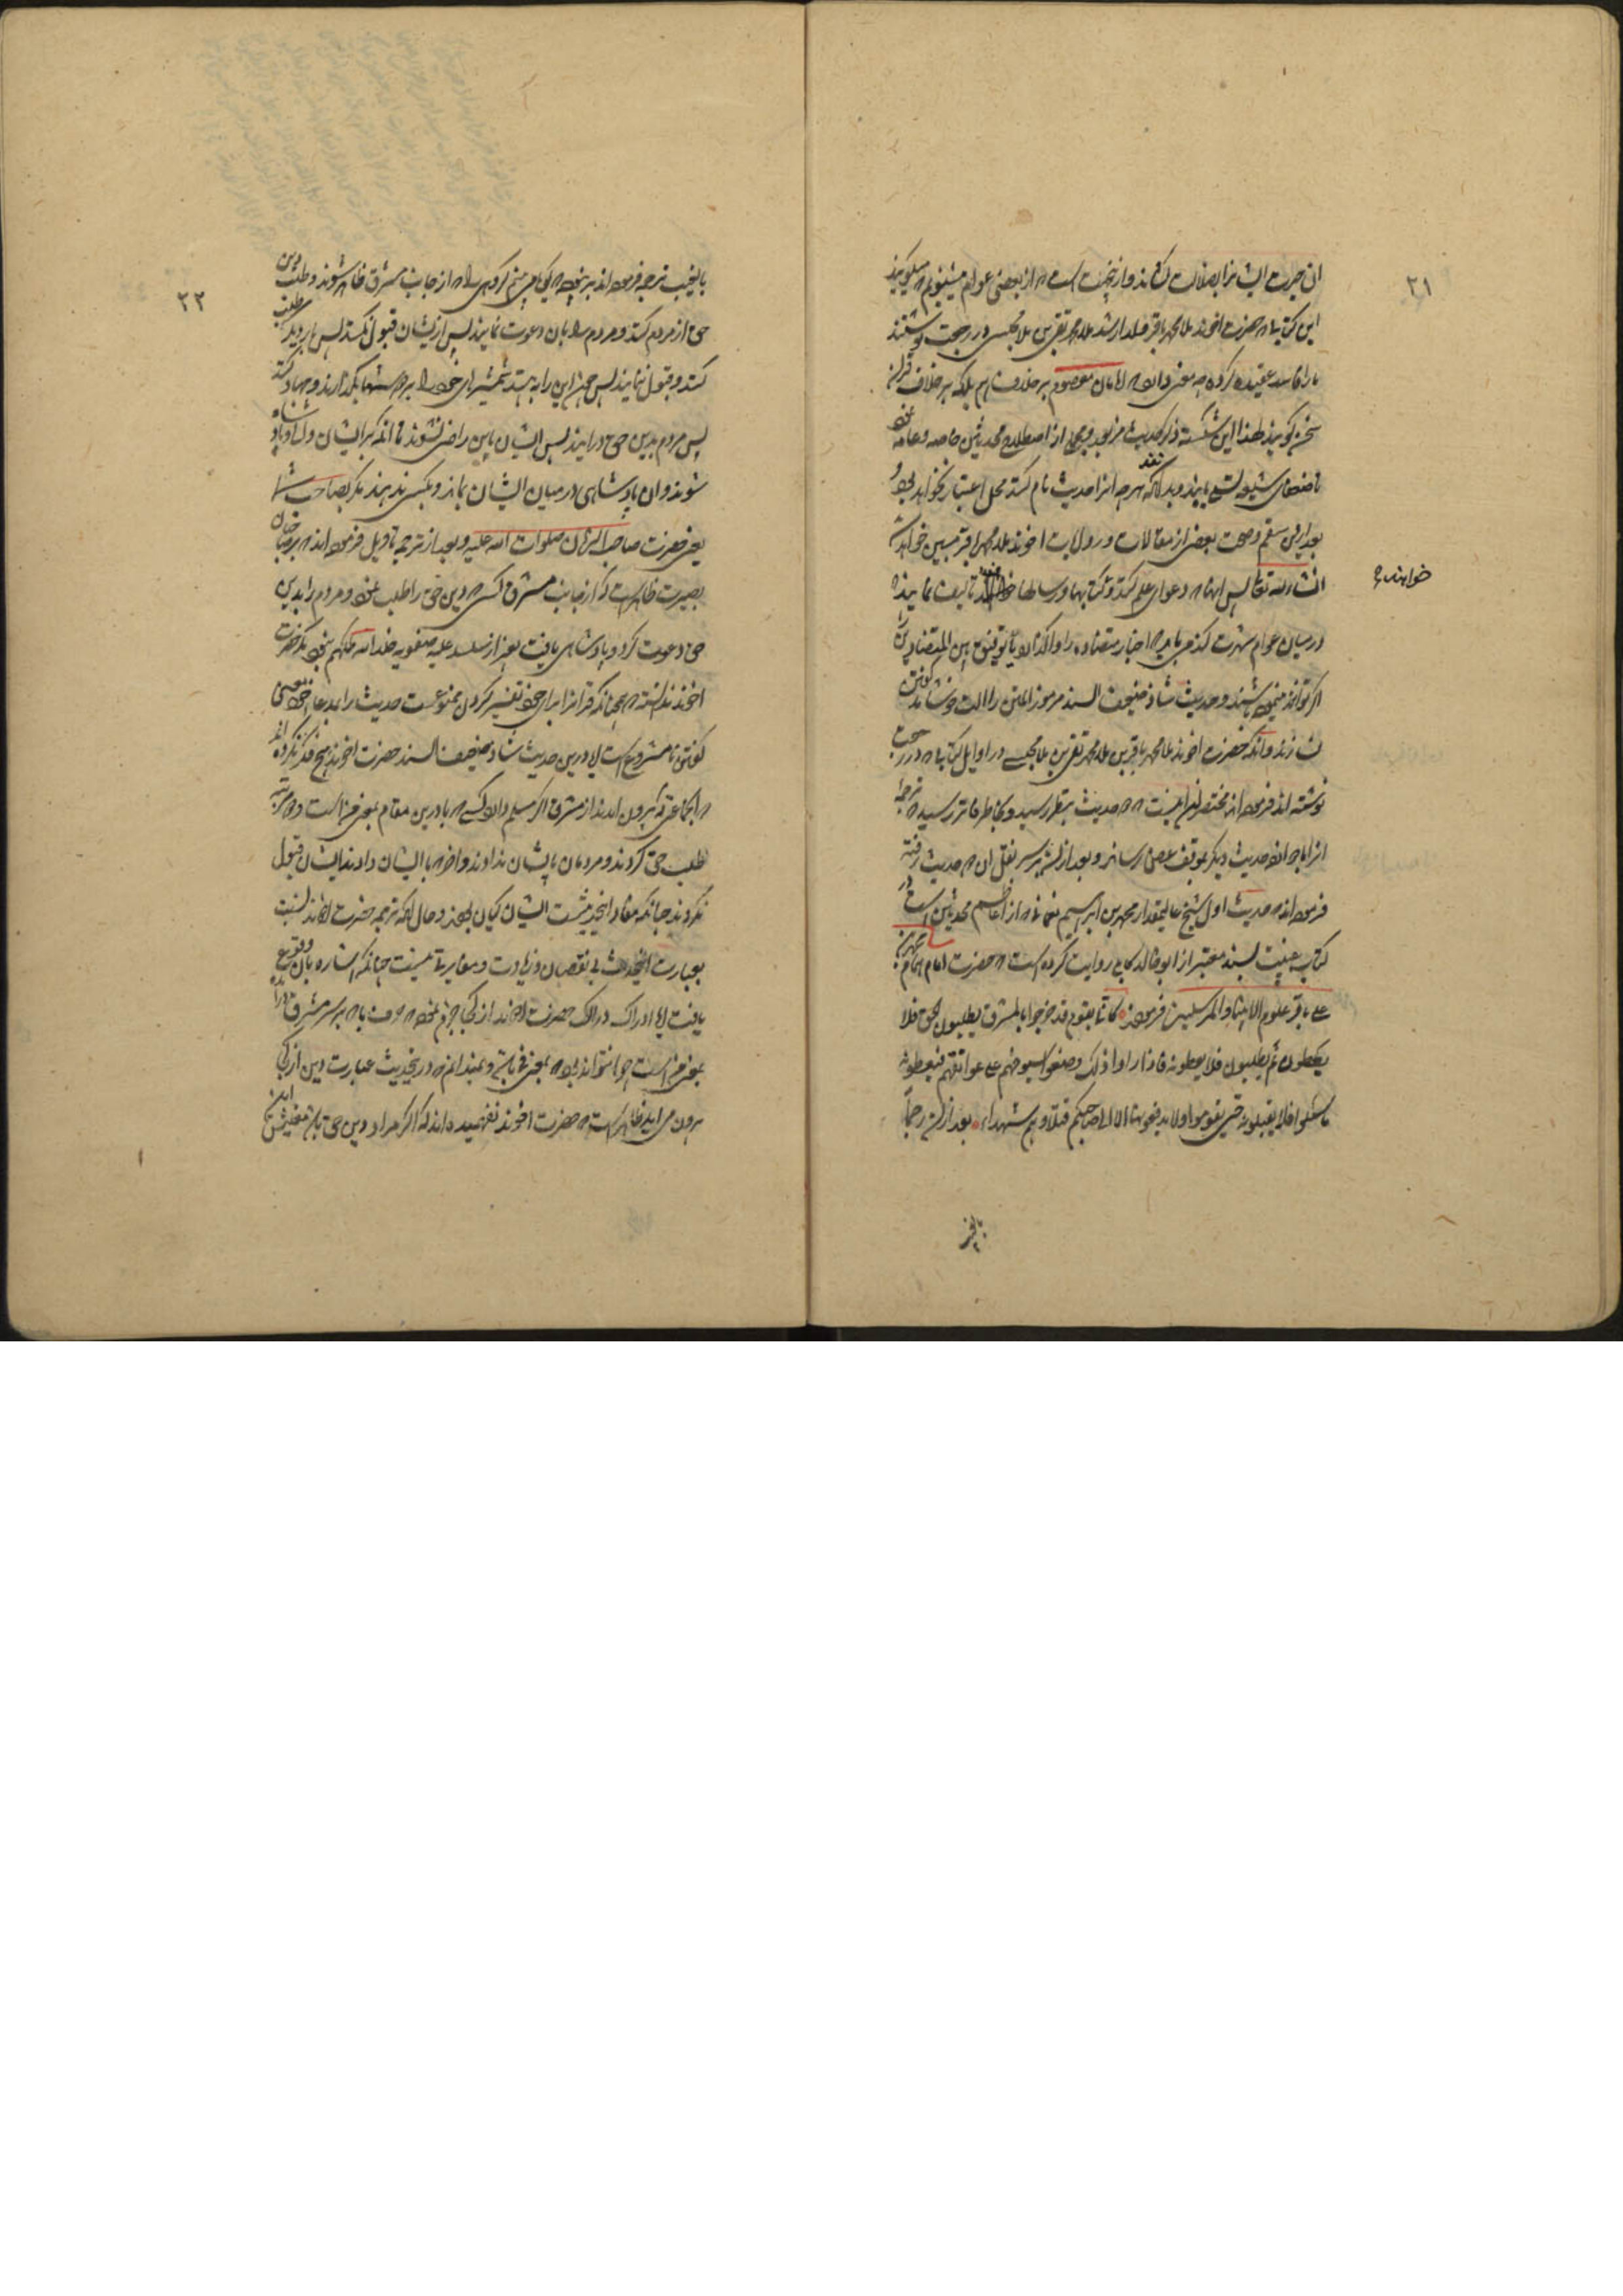 ۲۱
ان حیرت ایشانرا بضلالت کشاند و ازینجهت است که از بعضی عوام میشنویم که میگویند
این کتاب که حضرت اخوند ملا محمد باقر ولد ارشد ملا محمد تقی بن ملا مجلسی در رجعت نوشتند
ما را فاسد عقیده کرده چه معنی دارد که امامان معصوم بر خلاف هم بلکه بر خلاف قران
سخن گویند لهذا این شکسته ذکر حدیث مزبور و بعضی از اصطلاح محدثین خاصه و عامه نمود
تا ضعفای شیعه تشیع یابند و بدانند که هرچه انرا حدیث نام کنند محل اعتبار نخواهد بود و
بعد ازین سقم و صحت بعضی از مقالات و روایات اخوند ملا محمد باقر مبین خواهد شد
انشاء الله تعالی پس انها که دعوای علم کنند و کتابها و رسالها تالیف نمایند و
خواهند که
در میان عوام شهرت کنند می باید که اخبار متضاده را واگذارند یا توفیق بین المتضادین را
اگر توانند نموده باشند و حدیث شاذ ضعیف السند مرموز المتن را الت
نسازند و انکه حضرت اخوند ملا محمد باقر بن ملا محمد تقی بن ملا مجلسی در اوایل کتاب که در رجعت
نوشته اند فرموده اند مختصرش اینست که دو حدیث بنظر رسید و بخاطر فاتر رسید که ترجمه
انرا با چهارده حدیث دیگر بموقف عرض رساند و بعد از ان بر سر نقل ان دو حدیث رفته
فرموده اند که حدیث اول شیخ عالیمقدار محمد بن ابراهیم نعمانی که از اعاظم محدثین است در
کتاب غیبت بسند معتبر از ابو خالد کابلی روایت کرده است که حضرت امام همام محمد بن
علی باقر علوم الانبیاء و المرسلین فرموده کانی بقوم قد خرجوا بالمشرق یطلبون الحق فلا
یعطونه ثم یطلبون فلا یعطونه فاذا راوا ذلک وضعوا سیوفهم علی عواتقهم فیعطونه
ما سئلوا فلا یقبلونه حتی یقوموا ولا یدفعونها الا الی صاحبکم قتلاهم شهداء بعد ازان حدیث را
بایخب
۲۲
باینجب ترجمه فرموده اند بر نحوی که می بینم گروهی را که از جانب مشرق ظاهر شوند و طلب دین
حق از مردم کنند و مردم را بان دعوت نمایند پس ازیشان قبول نکنند پس بار دیگر طلب
کنند و قبول ننمایند پس چون این را به بینند شمشیرهای خود را بر دوشها بگذارند و جهاد کنند
پس مردم بدین حق درایند پس ایشان باین راضی نشوند تا انکه بر ایشان والی و پادشاه
شوند و ان پادشاهی در میان ایشان بماند و بکسی ندهند مگر بصاحب شما
یعنی حضرت صاحب الزمان صلوات الله علیه و بعد از ترجمه تاویل فرموده اند که بر صاحبان
بصیرت ظاهر است که از جانب مشرق کسی که دین حق را طلب نمود و مردم را بدین
حق دعوت کرد و پادشاهی یافت بغیر از سلسله علیه صفویه خلد الله ملکهم نبود مگر حضرت
اخوند ندانسته که چنانکه قرانرا برای خود تفسیر کردن ممنوع است حدیث را بمدعای خود معنی
گفتن نامشروع است و درین حدیث شاذ ضعیف السند حضرت اخوند هیچ فکر نکرده اند
که جماعتی که بیرون امدند از مشرق اگر مسلم دارد کسی که با درین مقام بمعنی من است دو مرتبه
طلب حق کردند و مردمان بایشان ندادند و اخر که بایشان دادند ایشان قبول
نکردند چنانکه مفاد اینحدیثست ایشان کیان بودند و حال انکه ترجمه حضرت اخوند نسبت
بعبارت اینحدیث بی نقصان و زیادت و مغایرتی نیست چنانکه اشاره بان وقوع
یافت ایا ادراک دراک حضرت اخوند از کجا جزم نموده که حرف با که بر سر مشرق درامده
بمعنی من است چرا نتواند بود که بمعنی فی باشد و نمیدانم که در اینحدیث عبارت دین از کجا
بیرون می اید ظاهر است که حضرت اخوند نفهمیده اند که اگر مراد دین حق باشد معنیش این